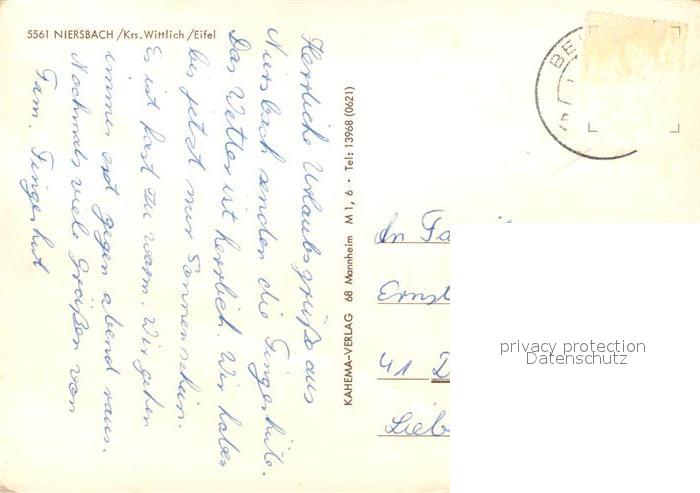 5561 NIERSBACH /Krs. Wittlich /Eifel
Herrliche Urlaubsgrüße aus
Niersbach senden die Fingerhüte.
Das Wetter ist herrlich. Wir haben
bis jetzt nur Sonnenschein.
Es ist fast zu warm. Wir gehen
immer erst gegen abend raus.
Nochmals viele Grüßen von
Fam. Fingerhut
KAHEMA-VERLAG 68 Mannheim M 1, 6 · Tel: 13968 (0621)
BE
An Fa
Ernst
41 D
Lieb
privacy protection
Datenschutz